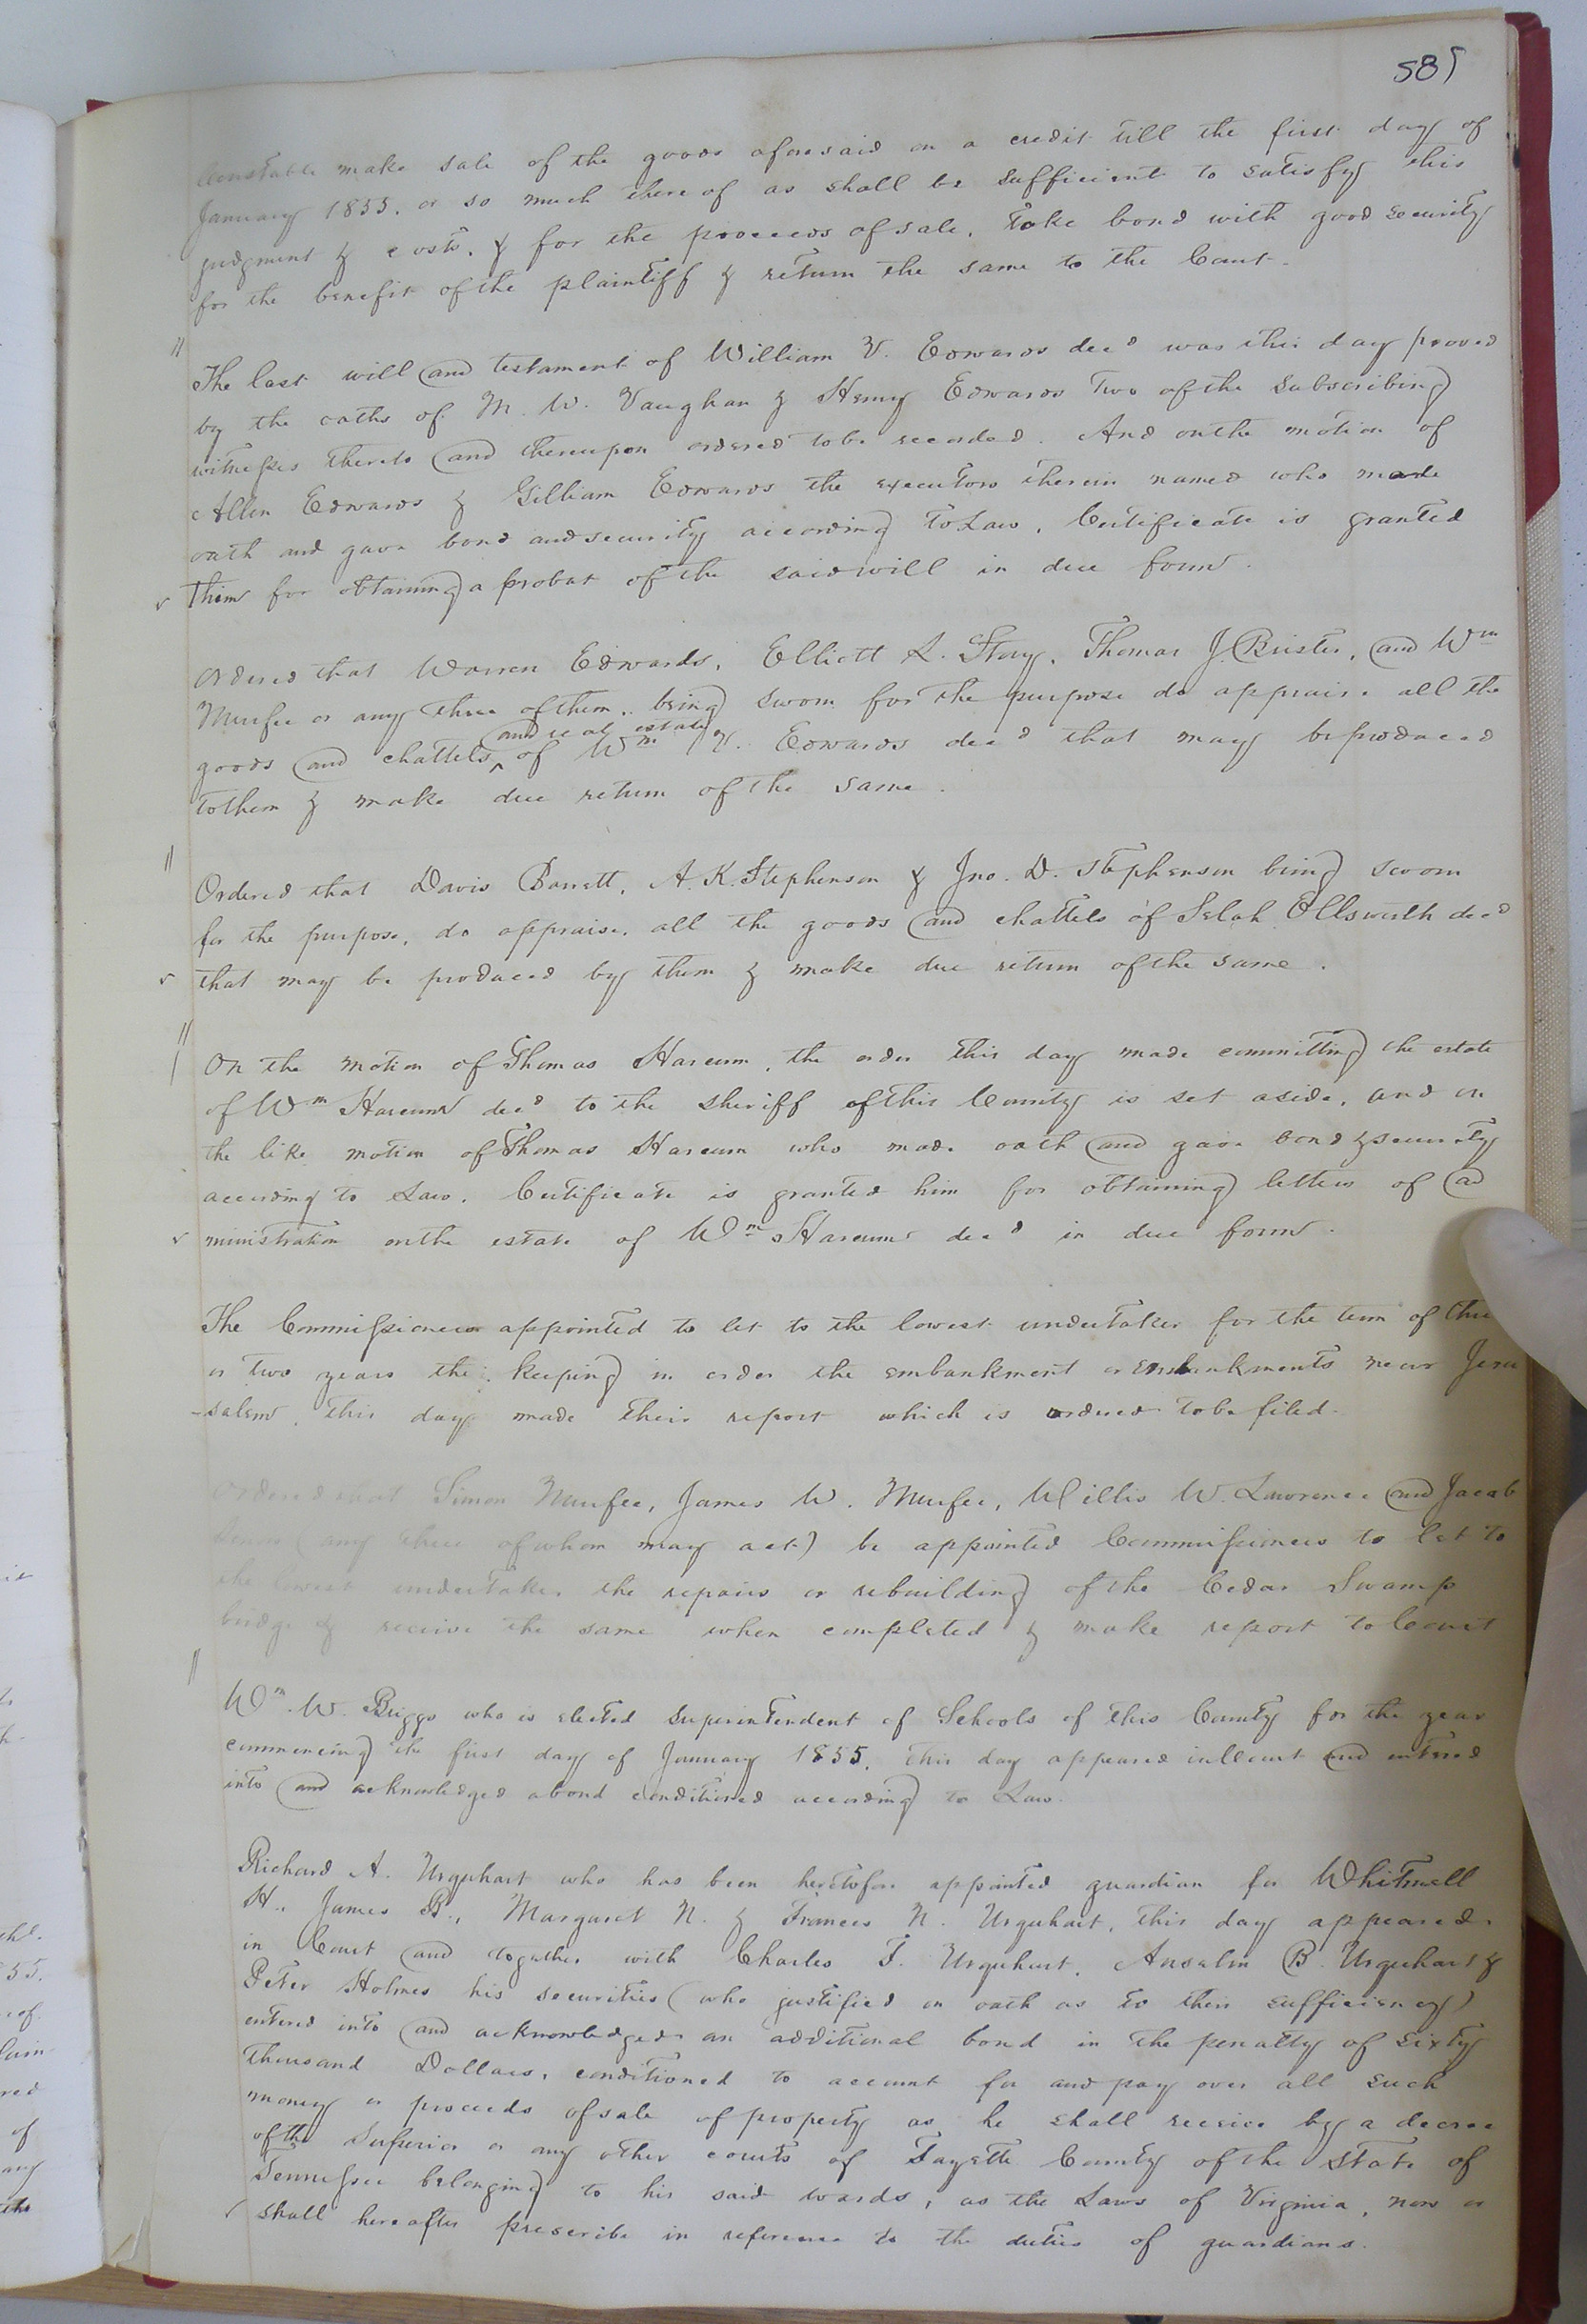 585
Constable make sale of the goods aforesaid on a credit till the first day of
January 1855. or so much thereof as shall be sufficient to satisfy this
judgment & costs. & for the proceeds of sale, take bond with good security
for the benefit of the plaintiff & return the same to the Court.
The last will and testament of William V. Edwards decd was this day proved
by the oaths of M. W. Vaughan & Henry Edwards two of the subscribing
witnesses thereto and thereupon ordered to be recorded. And on the motion of
Allen Edwards & Gilliam Edwards the executors therein named who made
oath and gave bond and security according to Law, Certificate is granted
them for obtaining a probat of the said will in due form.
Ordered that Warren Edwards, Elliott L. Story, Thomas J. Brister, and Wm
Murfee or any three of them, being sworn for the purpose do appraise all the
goods and chattels and real estate of Wm V. Edwards decd that may be produced
to them & make due return of the same.
Ordered that Davis Barrett, A. K. Stephenson & Jno. D. Stephenson being sworn
for the purpose, do appraise, all the goods and chattels of Selah Ellsworth decd
that may be produced by them & make due return of the same.
On the motion of Thomas Harcum, the order this day made committing the estate
of Wm Harcum decd to the sheriff of this County is set aside, and on
the like motion of Thomas Harcum who made oath and gave bond & security
according to Law. Certificate is granted him for obtaining letters of ad
ministration on the estate of Wm Harcum decd in due form.
The Commissioners appointed to let to the lowest undertaker for the term of
or two years the keeping in order the embankment or embankments near Jeru
-salem, this day made their report which is ordered to be filed.
Ordered that Simon Murfee, James W. Murfee, Willis W. Lawrence and Jacob
(any three of whom may act) be appointed Commissioners to let to
the lowest undertaker the repairs or rebuilding of the Cedar Swamp
bridge & receive the same when completed & make report to Court
Wm. W. Briggs who is elected Superintendent of Schools of this County for the year
commencing the first day of January 1855, this day appeared in Court and entered
into and acknowledged a bond conditioned according to Law.
Richard A. Urquhart who has been heretofore appointed guardian for Whitmell
H., James B., Margaret N. & Frances N. Urquhart, this day appeared
in Court and together with Charles F. Urquhart, Anselm B. Urquhart &
Peter Holmes his securities (who justified on oath as to their sufficiency)
entered into and acknowledged an additional bond in the penalty of sixty
thousand Dollars, conditioned to account for and pay over all such
money or proceeds of sale of property as he shall receive by a decree
of the Superior or any other courts of Fayette County of the State of
Tennessee belonging to his said wards, as the Laws of Virginia, now or
shall hereafter prescribe in reference to the duties of guardians.